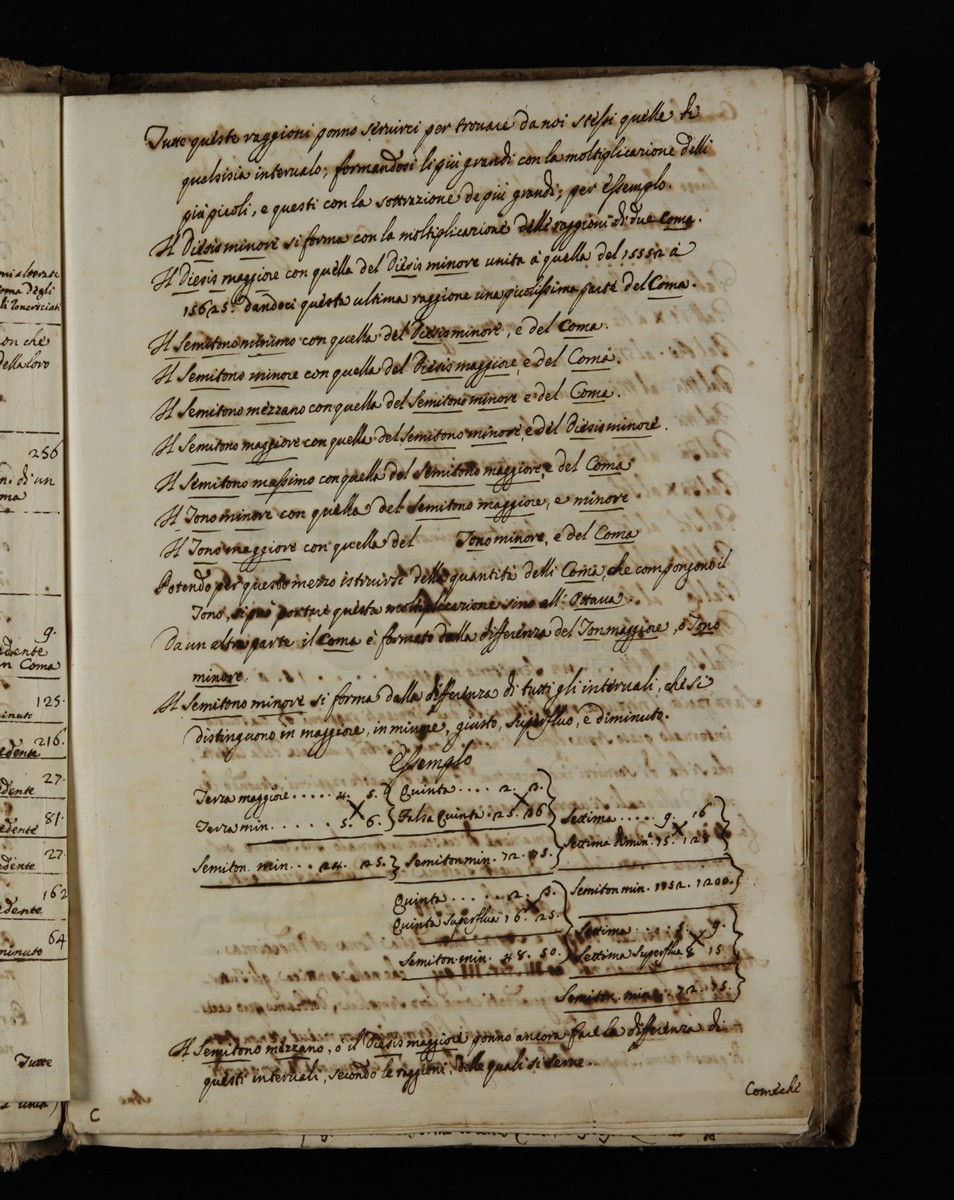 Tutte queste raggioni ponno seruirci per trouare da noi stessi quelle di
qualsisia interualo; formandosi li più grandi con la moltiplicazione delli
più picoli, e questi con la sottrazione de più grandi; per Essemplo.
Il Diesis minore si forma con la moltiplicazione delle raggioni di due Coma.
Il Diesis maggiore con quella del Diesis minore unita à quella del 15552 à
15625: dandoci questa ultima raggione una picolissima parte del Coma.
Il Semitono minimo con quella del Diesis minore, e del Coma.
Il Semitono minore con quella del Diesis maggiore, e del Coma.
Il Semitono mezzano con quella del Semitono minore e del Coma.
Il Semitono maggiore con quella del Semitono minore, e del Diesis minore.
Il Semitono massimo con quella del Semitono maggiore, e del Coma
Il Tono minore con quella del Semitono maggiore, e minore.
Il Tono maggiore con quella del Tono minore, e del Coma
Potendo per questo mezzo istruirsi delle quantità delli Coma, che compongono il
Tono, si può portare questa moltiplicazione sino all' Ottaua.
Da un altra parte il Coma è formato dalla differenza del Ton maggiore, e Tono
minore.
Il Semitono minore si forma dalla differenza di tutti gli interuali, che si
distinguono in maggiore, in minore, giusto, superfluo, e diminuto.
Essemplo
Terza maggiore ..... 4. 5.
Terza min. ..... 5. 6.
Semiton. min... 24. 25.
Quinta .... 2. 3.
Falsa Quinta . 25. 36
Semiton min. 72. 75.
Settima ..... 9. 16
Settima dimin. 75. 128
Semiton min. 1152. 1200.
Quinta ..... 2. 3.
Quinta superflua 16. 25.
Semiton. min. 48. 50.
Settima .... 5. 9.
Settima superflua 8 15.
Semiton. min. 72. 75.
Il Semitono mezzano, o il Diesis maggiore ponno ancora fare la differenza di
questi interuali, secondo le raggioni, delle quali si serue.
Comèchè
C
256
ma
9.
n Coma
125.
216.
27.
81.
27.
162
64
Tutte